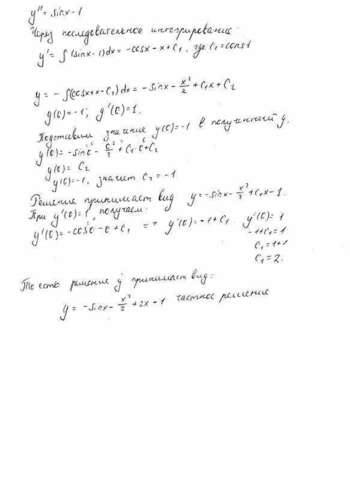 y'' = sinx - 1
Через последовательное интегрирование:
y' = ∫(sinx - 1)dx = -cosx - x + C₁, где C₁ = const
y = -∫(cosx + x - C₁)dx = -sinx - x²/2 + C₁x + C₂
y(0) = -1; y'(0) = 1.
Подставим значение y(0) = -1 в полученный y.
y(0) = -sin0 - 0²/2 + C₁·0 + C₂
y(0) = C₂
y(0) = -1, значит C₂ = -1
Решение принимает вид y = -sinx - x²/2 + C₁x - 1.
При y'(0) = 1, получаем:
y'(0) = -cos0 - 0 + C₁ => y'(0) = -1 + C₁ y'(0) = 1
-1 + C₁ = 1
C₁ = 1 + 1
C₁ = 2.
То есть решение y принимает вид:
y = -sinx - x²/2 + 2x - 1 частное решение